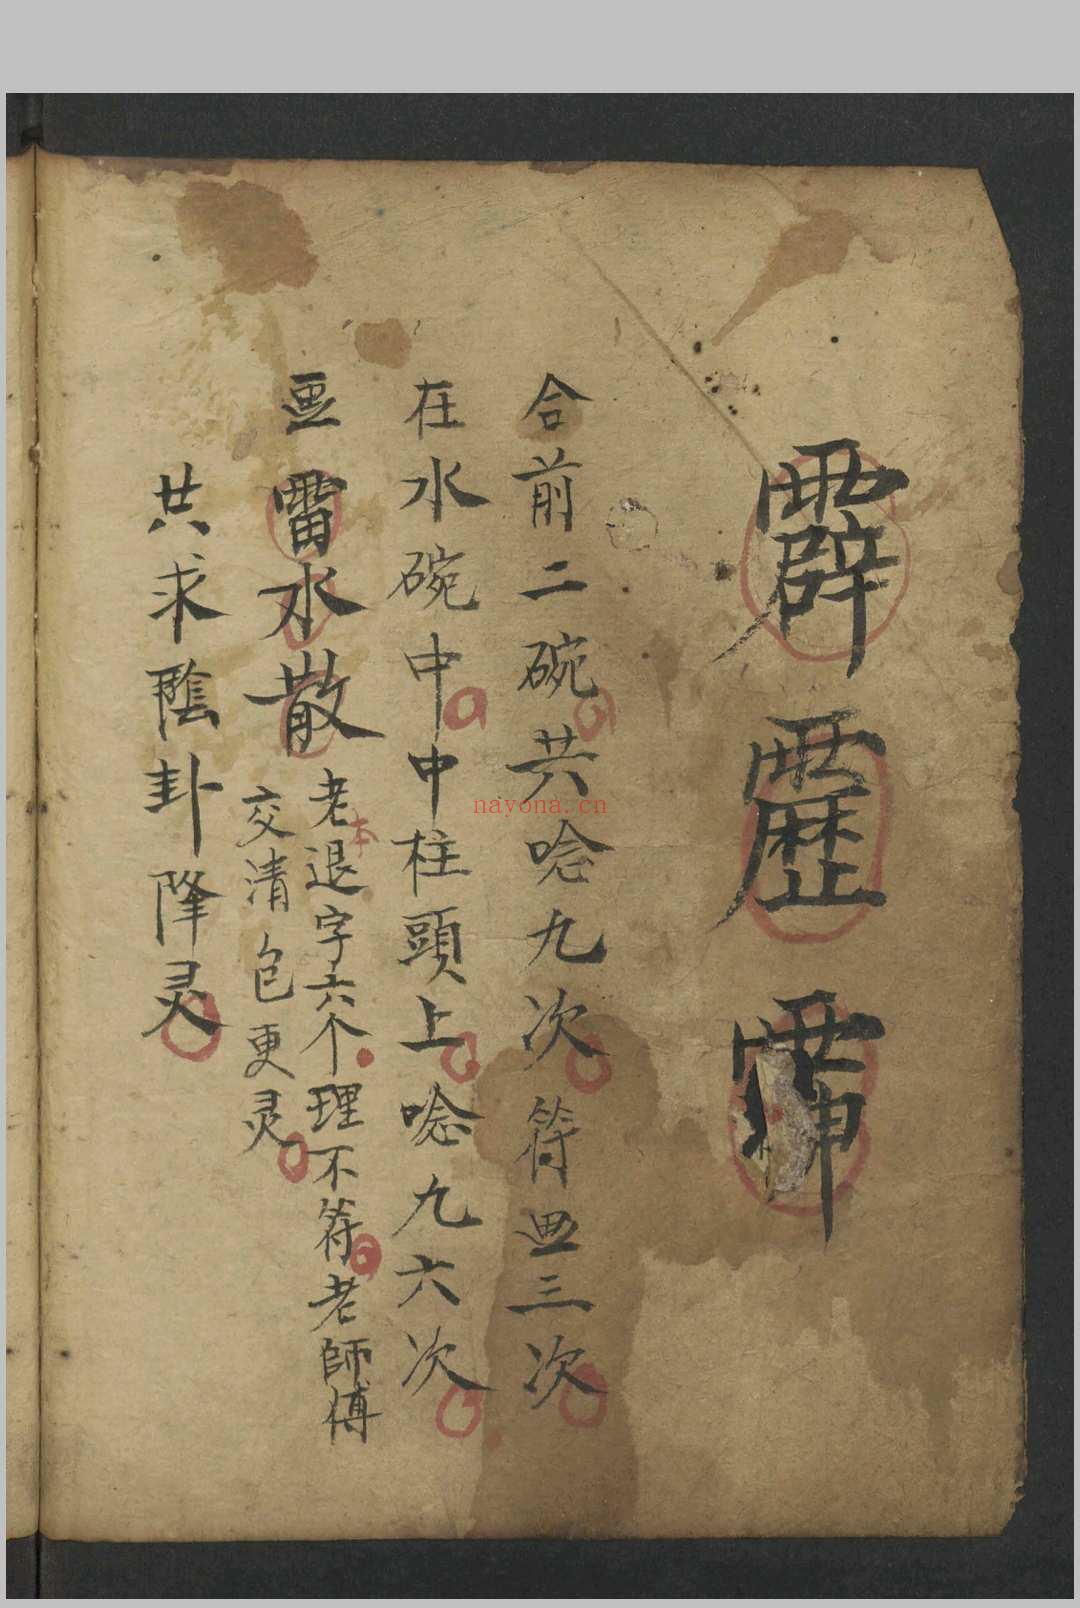 霹靂
合前二碗共唸九次符畫三次
在水碗中中柱頭上唸九六次
畫雷水散
老退字六个理不符老師傅
本
交清包更灵
共求陰卦降灵
nayona.cn